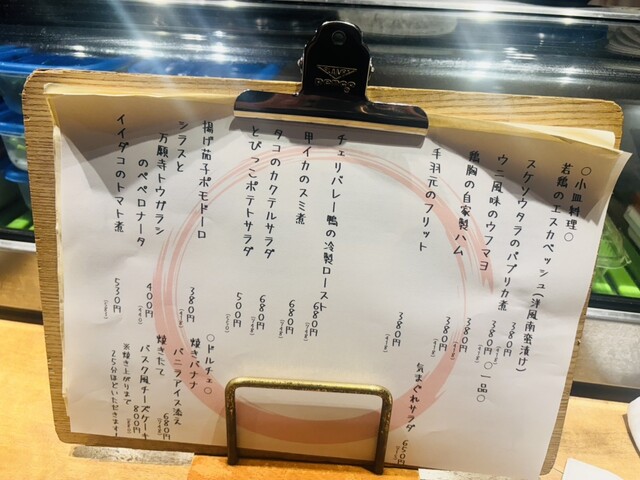 〇小皿料理〇
若鶏のエスカベッシュ(洋風南蛮漬け)
380円
スケソウタラのパプリカ煮
380円
ウニ風味のウフマヨ
380円
鶏胸の自家製ハム
380円
手羽元のフリット
380円
チェリバレー鴨の冷製ロースト
680円
甲イカのスミ煮
680円
タコのカクテルサラダ
680円
とびっこポテトサラダ
500円
揚げ茄子ポモドーロ
380円
シラスと
万願寺トウガラシ
のペペロナータ
400円
イイダコのトマト煮
530円
〇一品〇
気まぐれサラダ
650円
〇ドルチェ〇
焼きバナナ
バニラアイス添え
680円
焼きたて
バスク風チーズケーキ
800円
※焼き上がりまで
25分ほどいただきます!